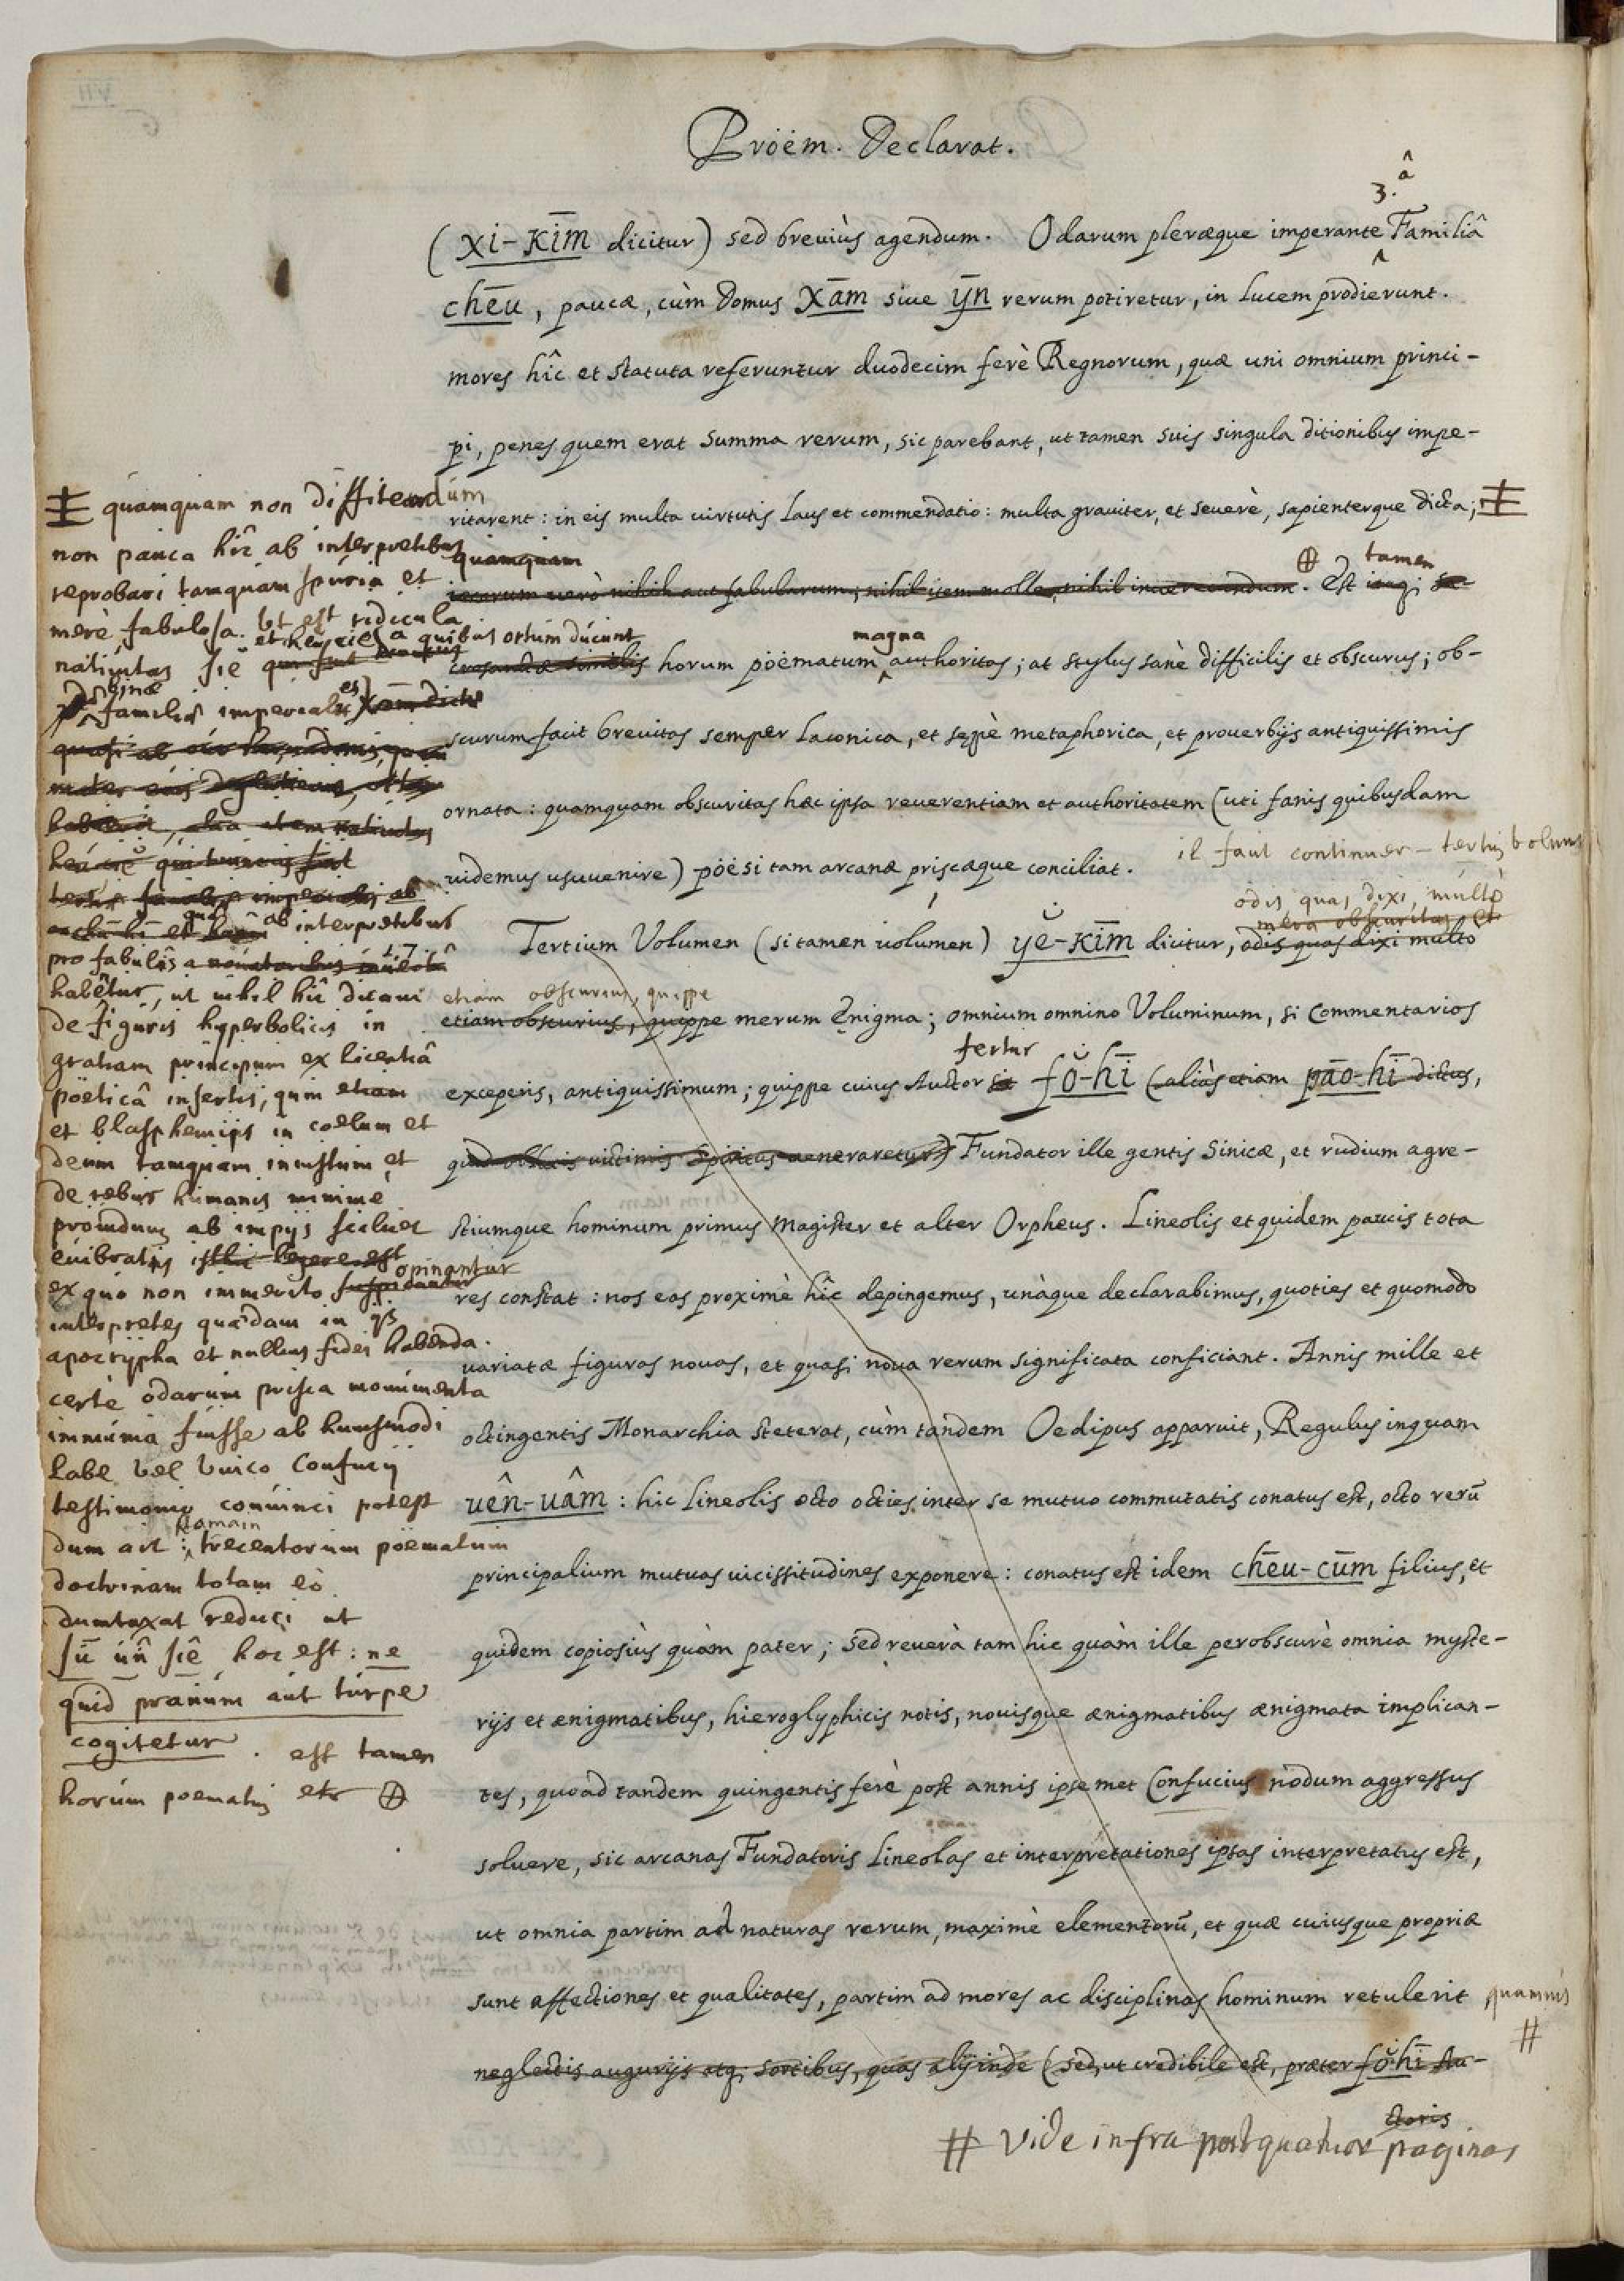 Pröem. Declarat.
3.â
(xi-Kīm dicitur) sed breviùs agendum. Odarum pleræque imperante Familiâ
chēu, paucæ, cùm Domus Xām sive ȳn rerum potiretur, in lucem prodierunt.
mores hîc et statuta referuntur duodecim ferè Regnorum, quæ uni omnium princi-
pi, penes quem erat summa rerum, sic parebant, ut tamen suis singula ditionibus impe-
ritarent: in eis multa virtutis laus et commendatio: multa graviter, et severè, sapienterque dicta;
quamquam
nihil aut fabularum, nihil item molle, nihil inverecundum. Est itaqi
tamen
horum pöematum authoritas; at stylus sanè difficilis et obscurus; ob-
magna
scurum facit brevitas semper laconica, et sępè metaphorica, et proverbijs antiquissimis
ornata: quamquam obscuritas hæc ipsa reverentiam et authoritatem (uti fanis quibusdam
videmus usuvenire) pöesi tam arcanæ priscæque conciliat.
il faut continuer – tertiu volum
odis, quas dixi, multò
mera obscuritas, et
Tertium Volumen (si tamen volumen) yĕ-Kīm dicitur, odis quas dixi multo
etiam obscurius, quippe
etiam obscurius, quippe merum Ęnigma; omnium omnino Voluminum, si Commentarios
fertur
exceperis, antiquissimum; quippe cuius Auctor sit fŏ-hī (aliàs etiam pāo-hī dictus,
quòd oblatis victimis Spiritus veneraretur) Fundator ille gentis Sinicæ, et rudium agre-
stiumque hominum primus Magister et alter Orpheus. Lineolis et quidem paucis tota
res constat: nos eas proximè hîc depingemus, unàque declarabimus, quoties et quomodo
variatæ figuras novas, et quasi nova rerum significata conficiant. Annis mille et
octingentis Monarchia steterat, cùm tandem Oedipus apparuit, Regulus inquam
vên-vâm: hic lineolis octo octies inter se mutuo commutatis conatus est, octo rerū
principalium mutuas vicissitudines exponere: conatus est idem chēu-cūm filius, et
quidem copiosiùs quàm pater; sed reverà tam hic quàm ille perobscurè omnia myste-
rijs et ænigmatibus, hieroglyphicis notis, novisque ænigmatibus ænigmata implican-
tes, quoad tandem quingentis ferè post annis ipsemet Confucius nodum aggressus
solvere, sic arcanas Fundatoris lineolas et interpretationes ipsas interpretatus est,
ut omnia partim ad naturas rerum, maximè elementorū, et quæ cuiusque propriæ
sunt affectiones et qualitates, partim ad mores ac disciplinas hominum retulerit quamvis
#
neglectis augurijs atqi sortibus, quas alij inde (sed, ut credibile est, præter fŏ-hī Au-
ctoris
# Vide infra post quatuor paginas
quamquam non diffitendum
non pauca hîc ab interpretibus
reprobari tamquam spuria et
merè fabulosa. Ut est ridicula
et heu cie a quibus ortum ducunt
nativitas sie
binæ
familiæ imperiales
ab interpretibus
pro fabulis a
habētur, ut nihil hîc dicam
de figuris hyperbolicis in
gratiam principum ex licentiâ
pöeticâ insertis, quin etiam
et blasphemijs in coelum et
deum tamquam iniustum et
de rebus humanis minime
providum ab impijs scilicet
evibratis istic legere est
opinantur
ex quo non immerito suspicantur
interpretes quædam in ijs
apocrypha et nullius fidei habenda.
certè odarum prisca monumenta
immunia fuisse ab huiusmodi
labe vel unico Confucij
testimonio convinci potest
dum ait: trecentorum pöematum
doctrinam totam eò
dumtaxat reduci ut
sū û siê hoc est: ne
quid pravum aut turpe
cogitetur. est tamen
horum poematū etc